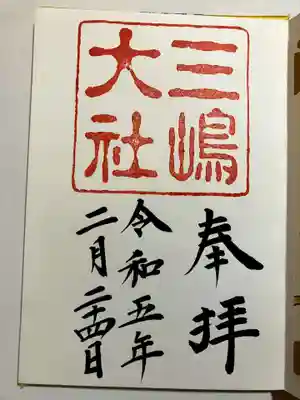 三嶋
大社
奉拝
令和五年
二月二十四日